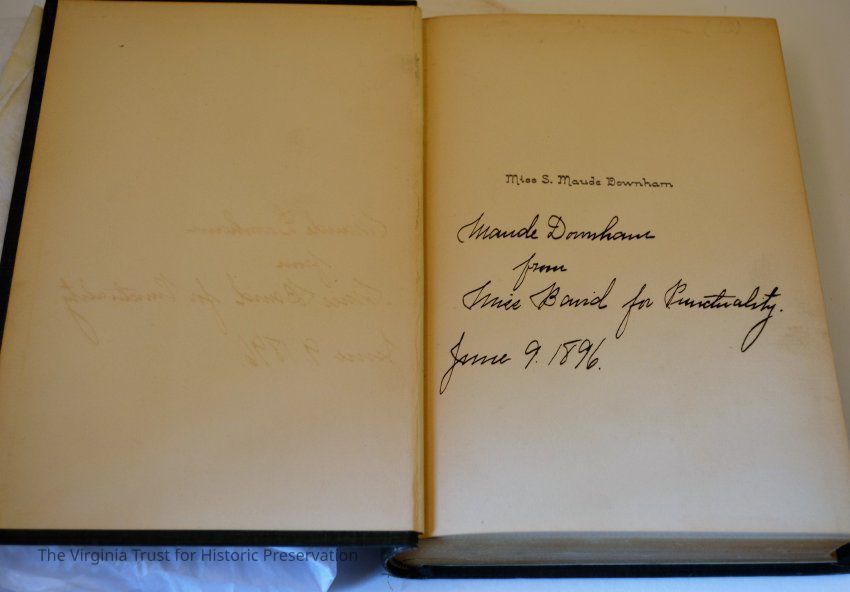 Miss S. Maude Downham
Maude Downham
from
Miss Baird for Punctuality.
June 9. 1896.
The Virginia Trust for Historic Preservation